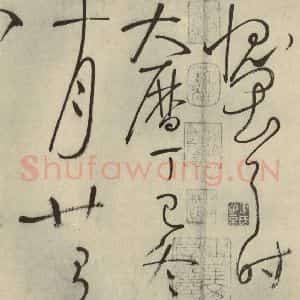 愧畏耳时
大曆丁巳冬
十月廿有
Shufawang.CN